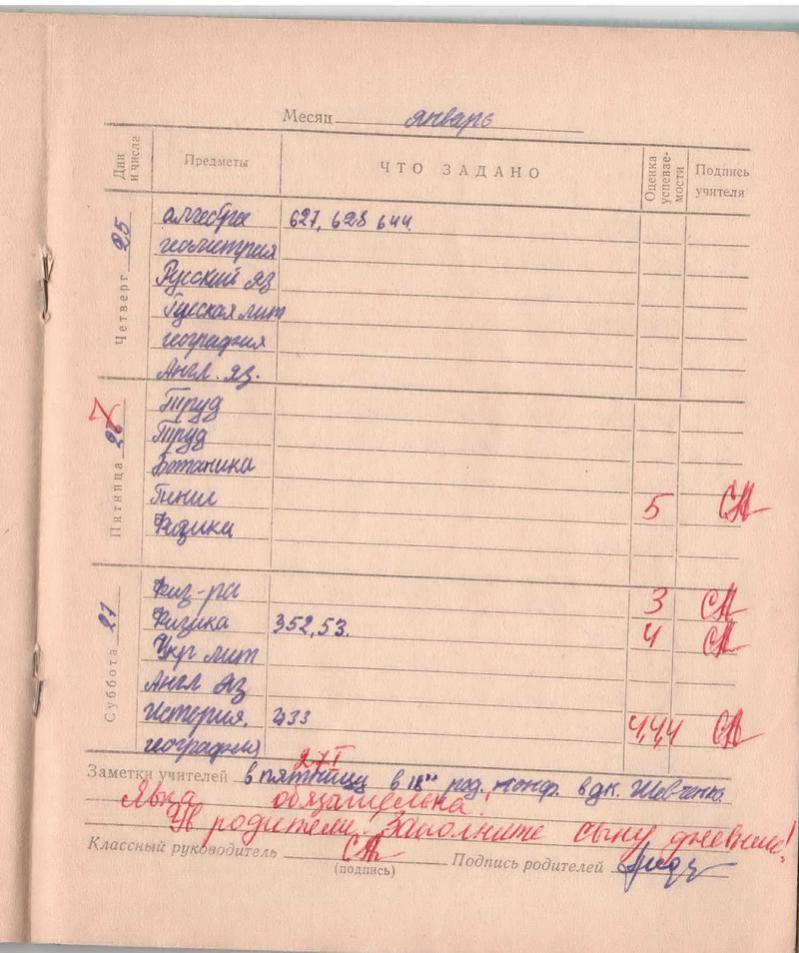 Месяц январь
Дни и числа Предметы ЧТО ЗАДАНО Оценка успевае-мости Подпись учителя
Четверг 25
алгебра 627, 628 644
геометрия
Русский яз
Русская лит
география
Англ. яз.
Пятница 26
Труд
Труд
Ботаника
Пение 5
Физика
Суббота 27
Физ-ра 3
Физика 352,53. 4
Укр лит
Англ яз
История. 233 4,4,4
география
27 I
Заметки учителей в пятницу в 18⁰⁰ род. конф. в дк. Шевченко.
Явка обязательна!
Ув родители. Заполните сыну дневник!
Классный руководитель Подпись родителей
(подпись)